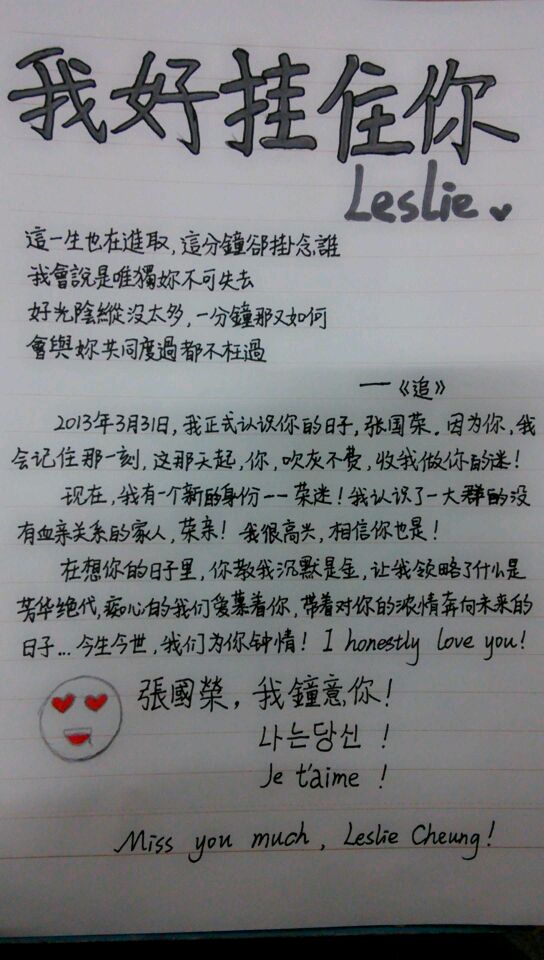 我好挂住你
Leslie
這一生也在進取，這分鐘卻掛念誰
我會說是唯獨妳不可失去
好光陰縱沒太多，一分鐘那又如何
會與妳共同度過都不枉過
—《追》
2013年3月31日，我正式认识你的日子，张国荣。因为你，我
会记住那一刻，这那天起，你，吹灰不费，收我做你的迷！
现在，我有一个新的身份--荣迷！我认识了一大群的没
有血亲关系的家人，荣亲！我很高兴，相信你也是！
在想你的日子里，你教我沉默是金，让我领略了什么是
芳华绝代，痴心的我们爱慕着你，带着对你的浓情奔向未来的
日子...今生今世，我们为你钟情！I honestly love you!
張國榮，我鐘意你！
나는당신！
Je t'aime！
Miss you much, Leslie Cheung!